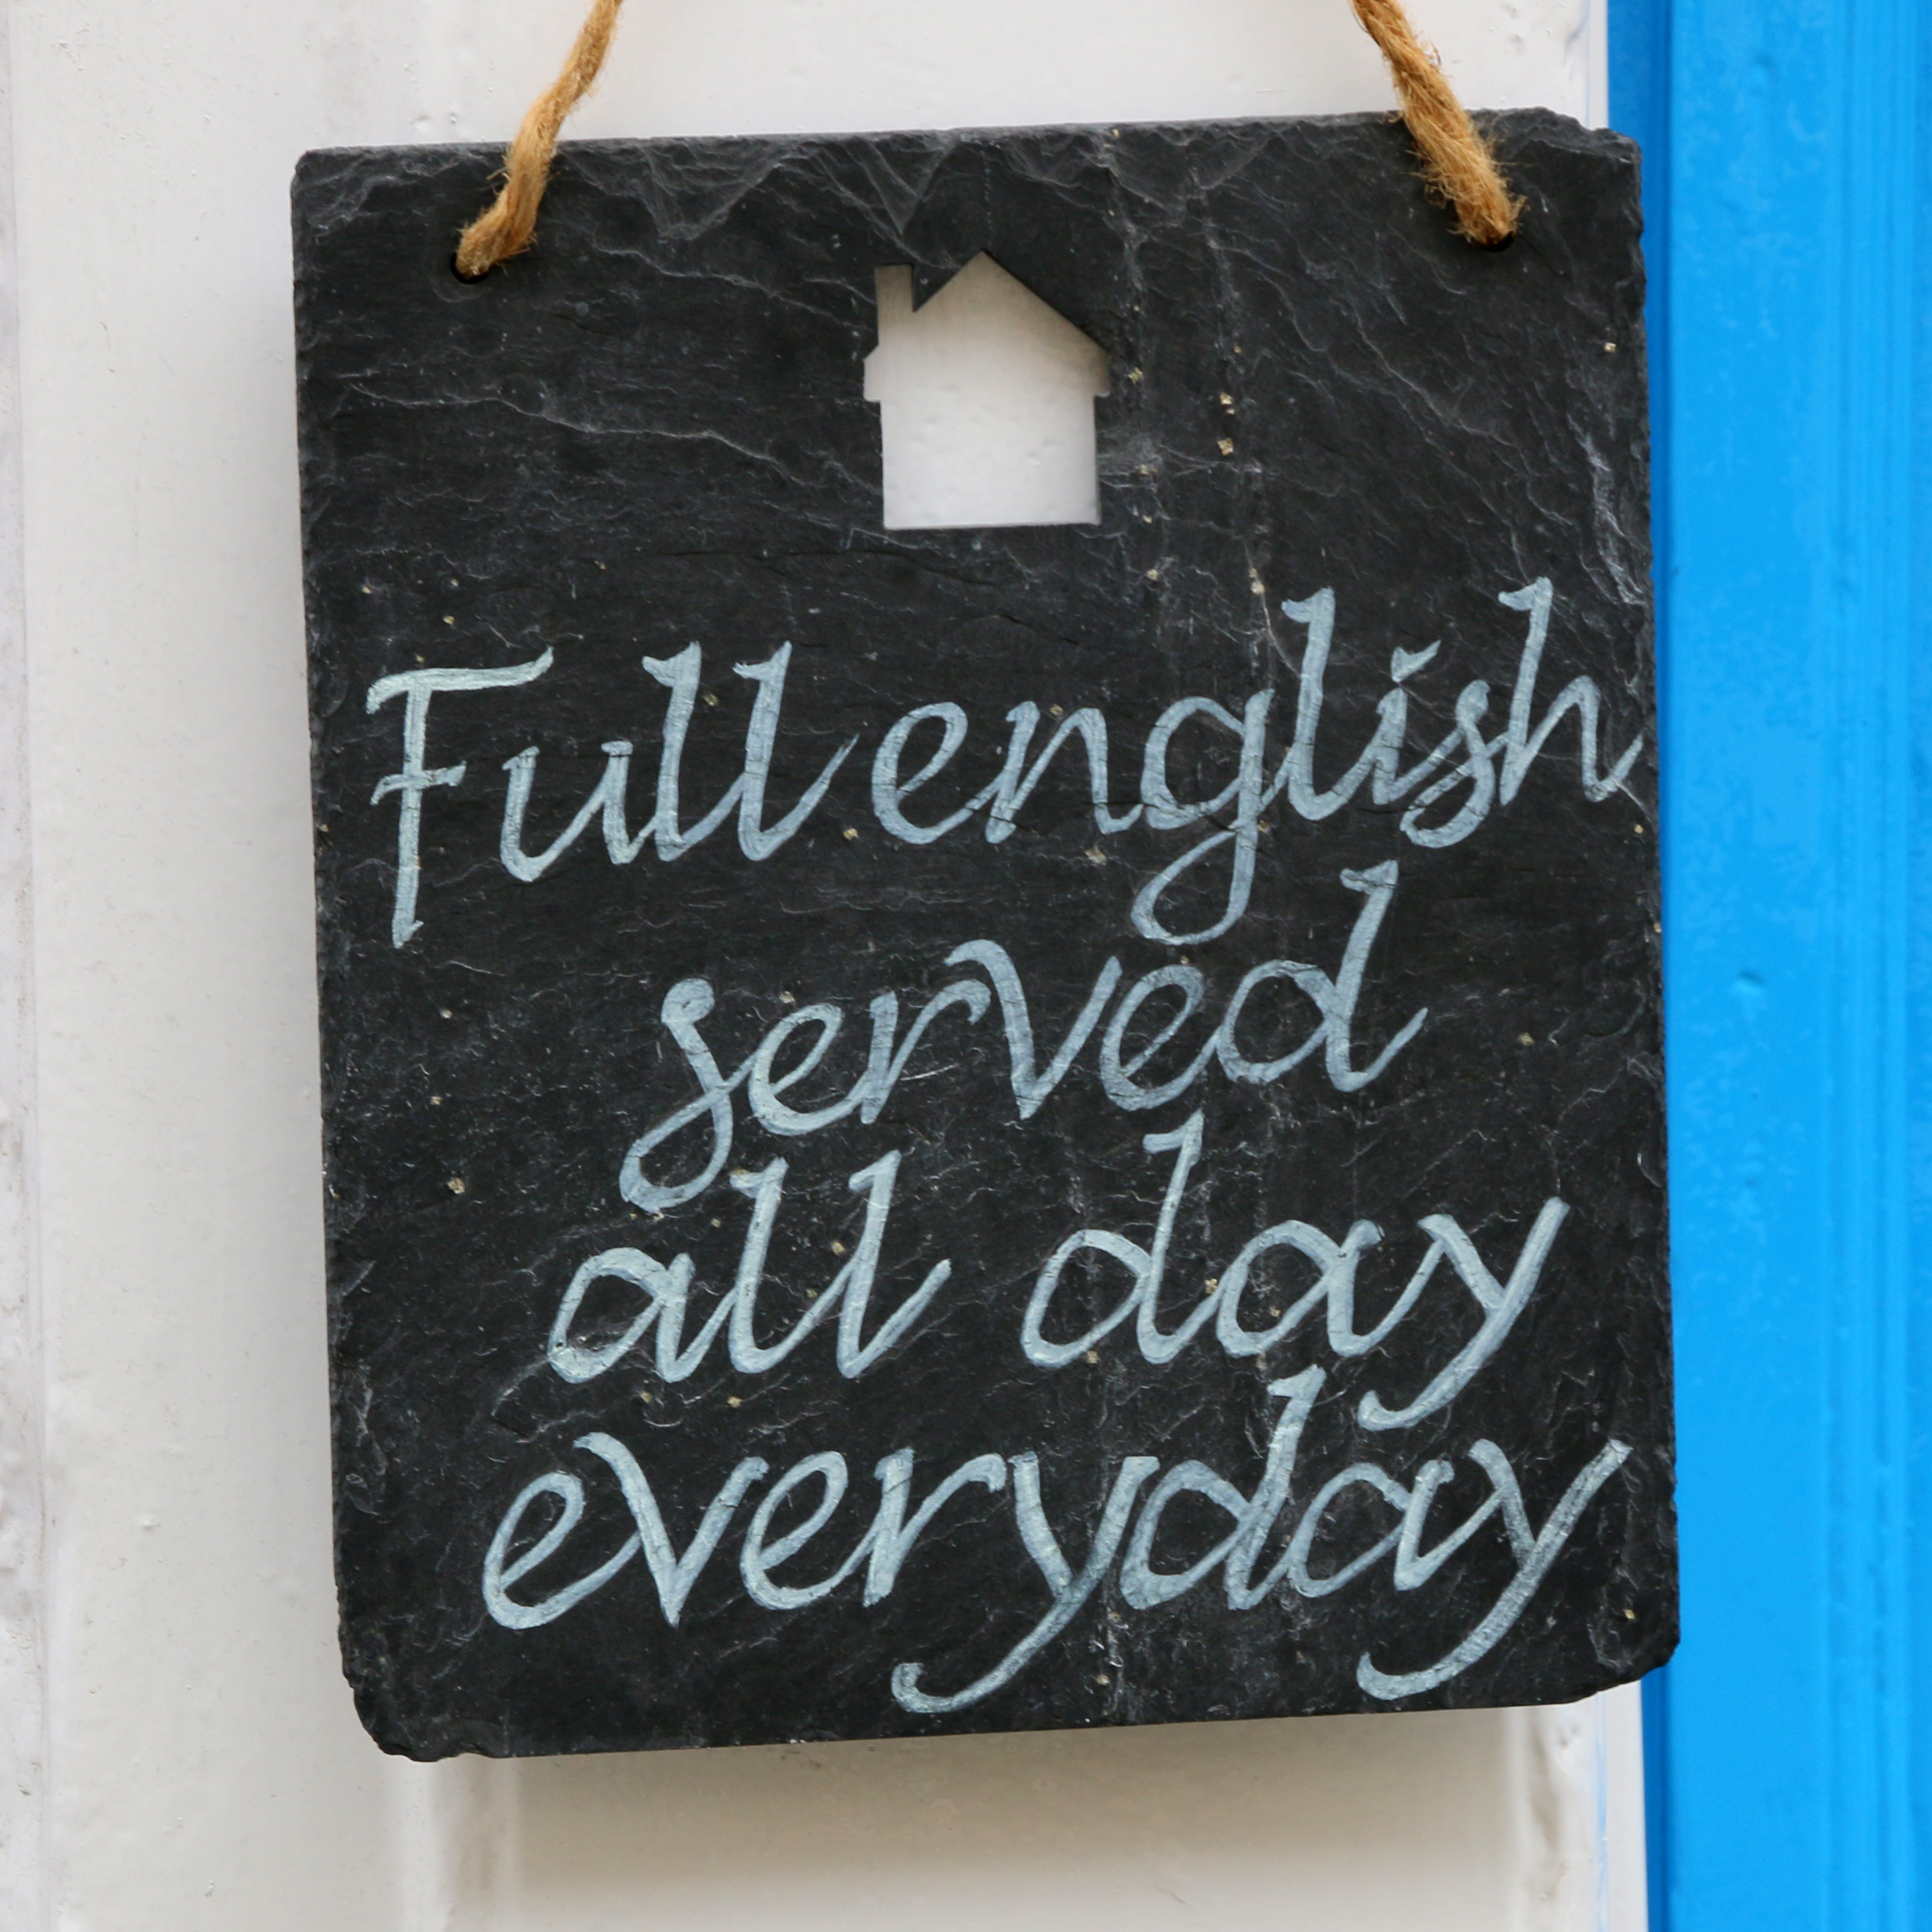 Full english
served
all day
everyday